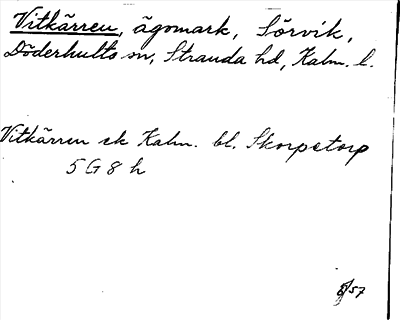 Vitkärren, ägomark, Sörvik,
Döderhults sn, Stranda hd, Kalm. l.
Vitkärren ek Kalm. bl. Skorpetorp
5 G 8 h
/57